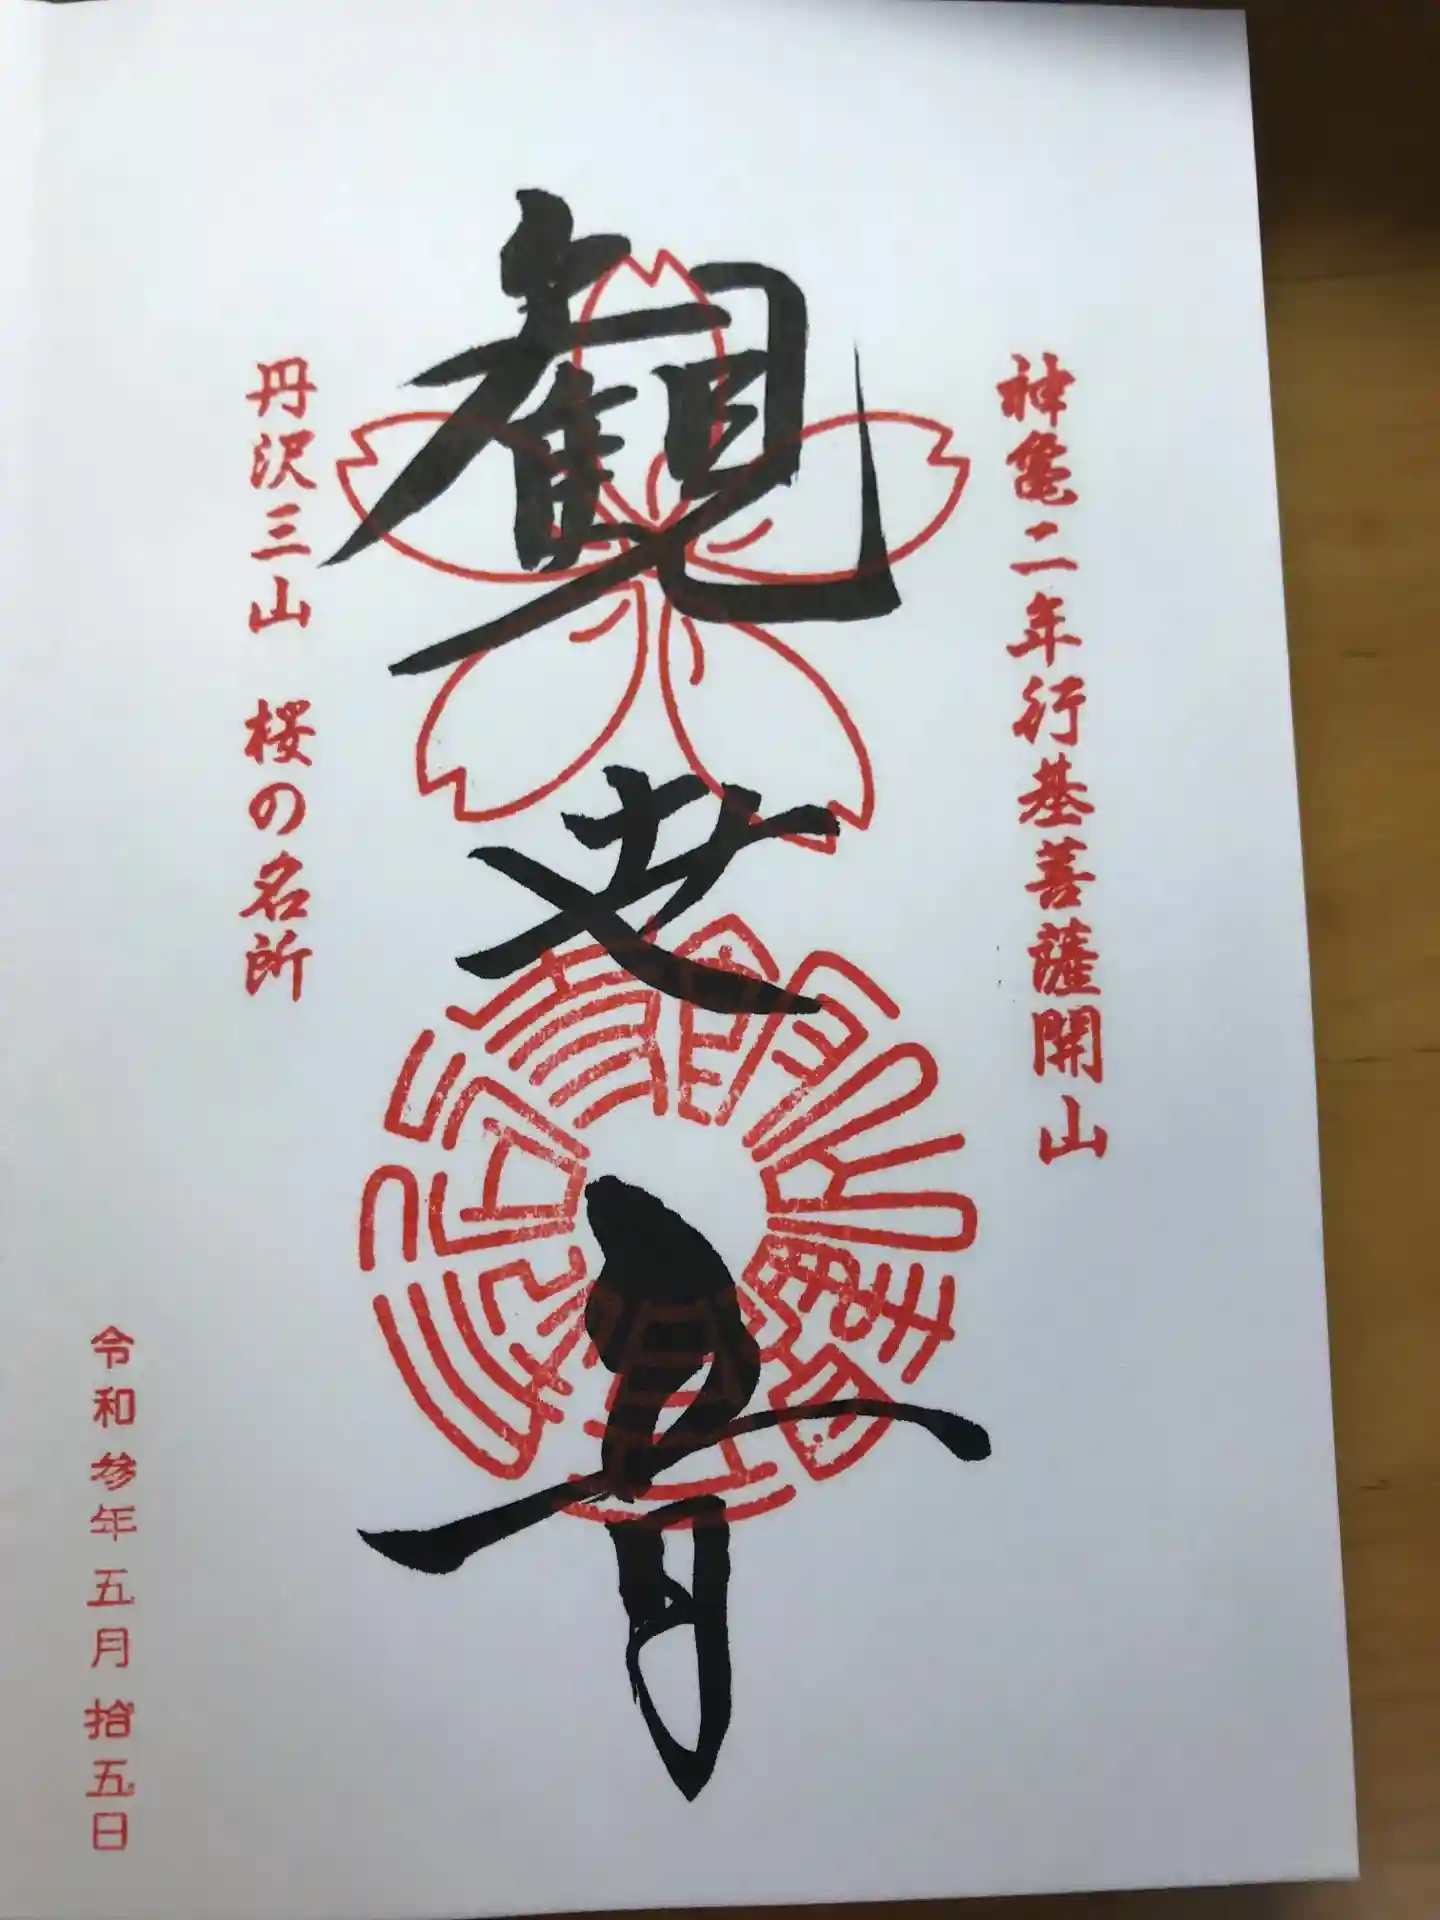 神亀二年行基菩薩開山
観世音
丹沢三山 桜の名所
令和参年五月拾五日